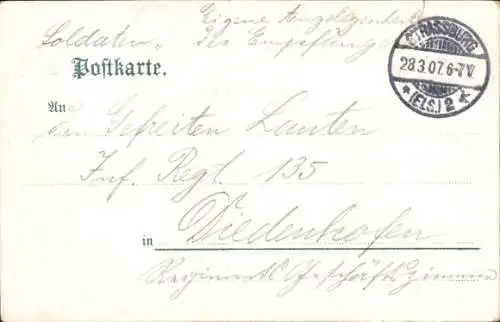 Eigene Angelegenheit
Soldaten" des Empfängers
Postkarte.
STRASSBURG
28.3.07. 6-7V.
* (ELS.) 2 *
An
den Gefreiten Lauten
Inf. Regt. 135
Diedenhofen
in
Regiments Geschäftszimmer